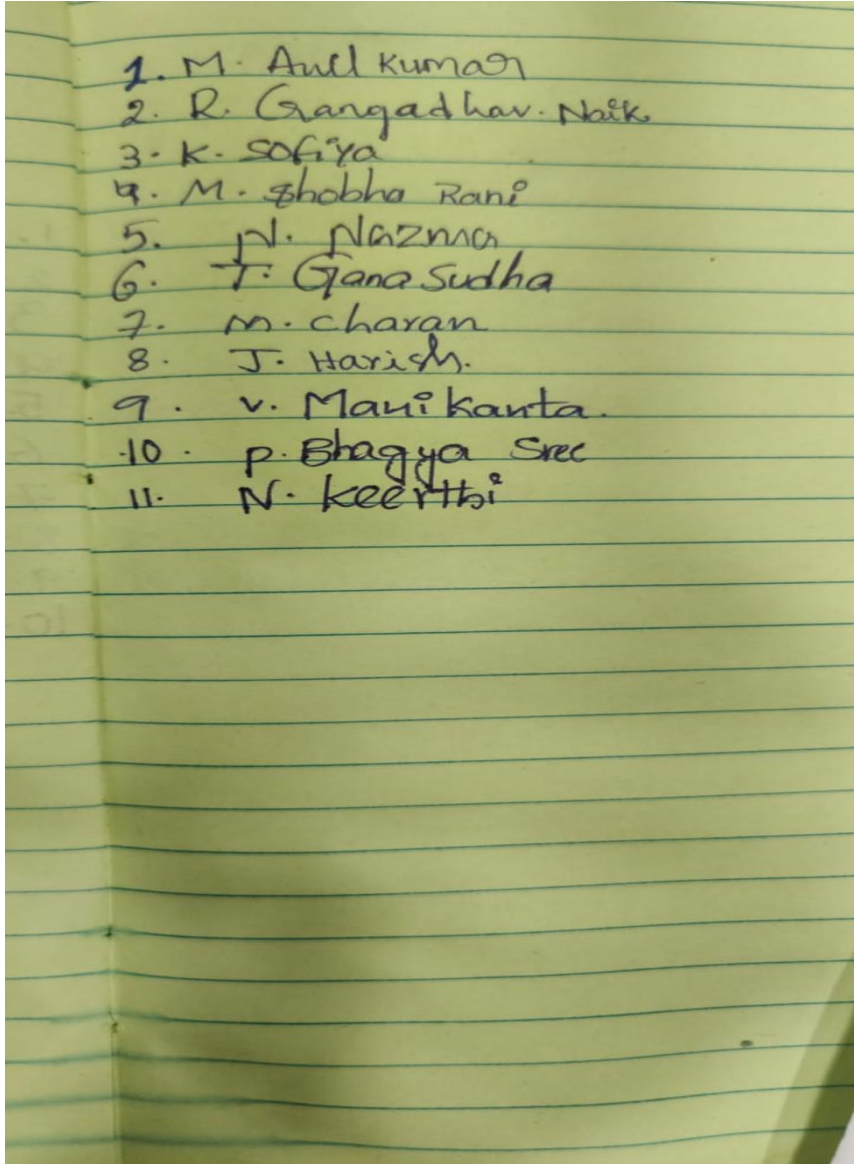 1. M. Anil Kumar
2. R. Gangadhar. Naik
3. K. Sofiya
4. M. Shobha Rani
5. N. Nazma
6. T. Gana Sudha
7. M. Charan
8. J. Harish.
9. V. Manikanta.
10. P. Bhagya Sree
11. N. Keerthi